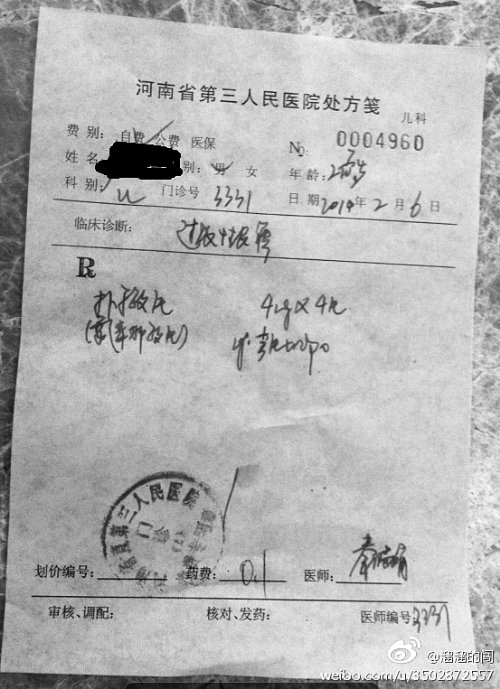 河南省第三人民医院处方笺
儿科
费别: 自费 公费 医保 No 0004960
姓名 别: 男 女 年龄: 2岁
科别: 儿 门诊号 3331 日期 2014年2月6日
临床诊断: 过敏性皮
R
扑尔敏片 4mg×4片
第三人民医院
门诊
划价编号: 药费: 0.1 医师:
审核、调配: 核对、发药: 医师编号 3331
@溜溜的闫
weibo.com/u/3502872557